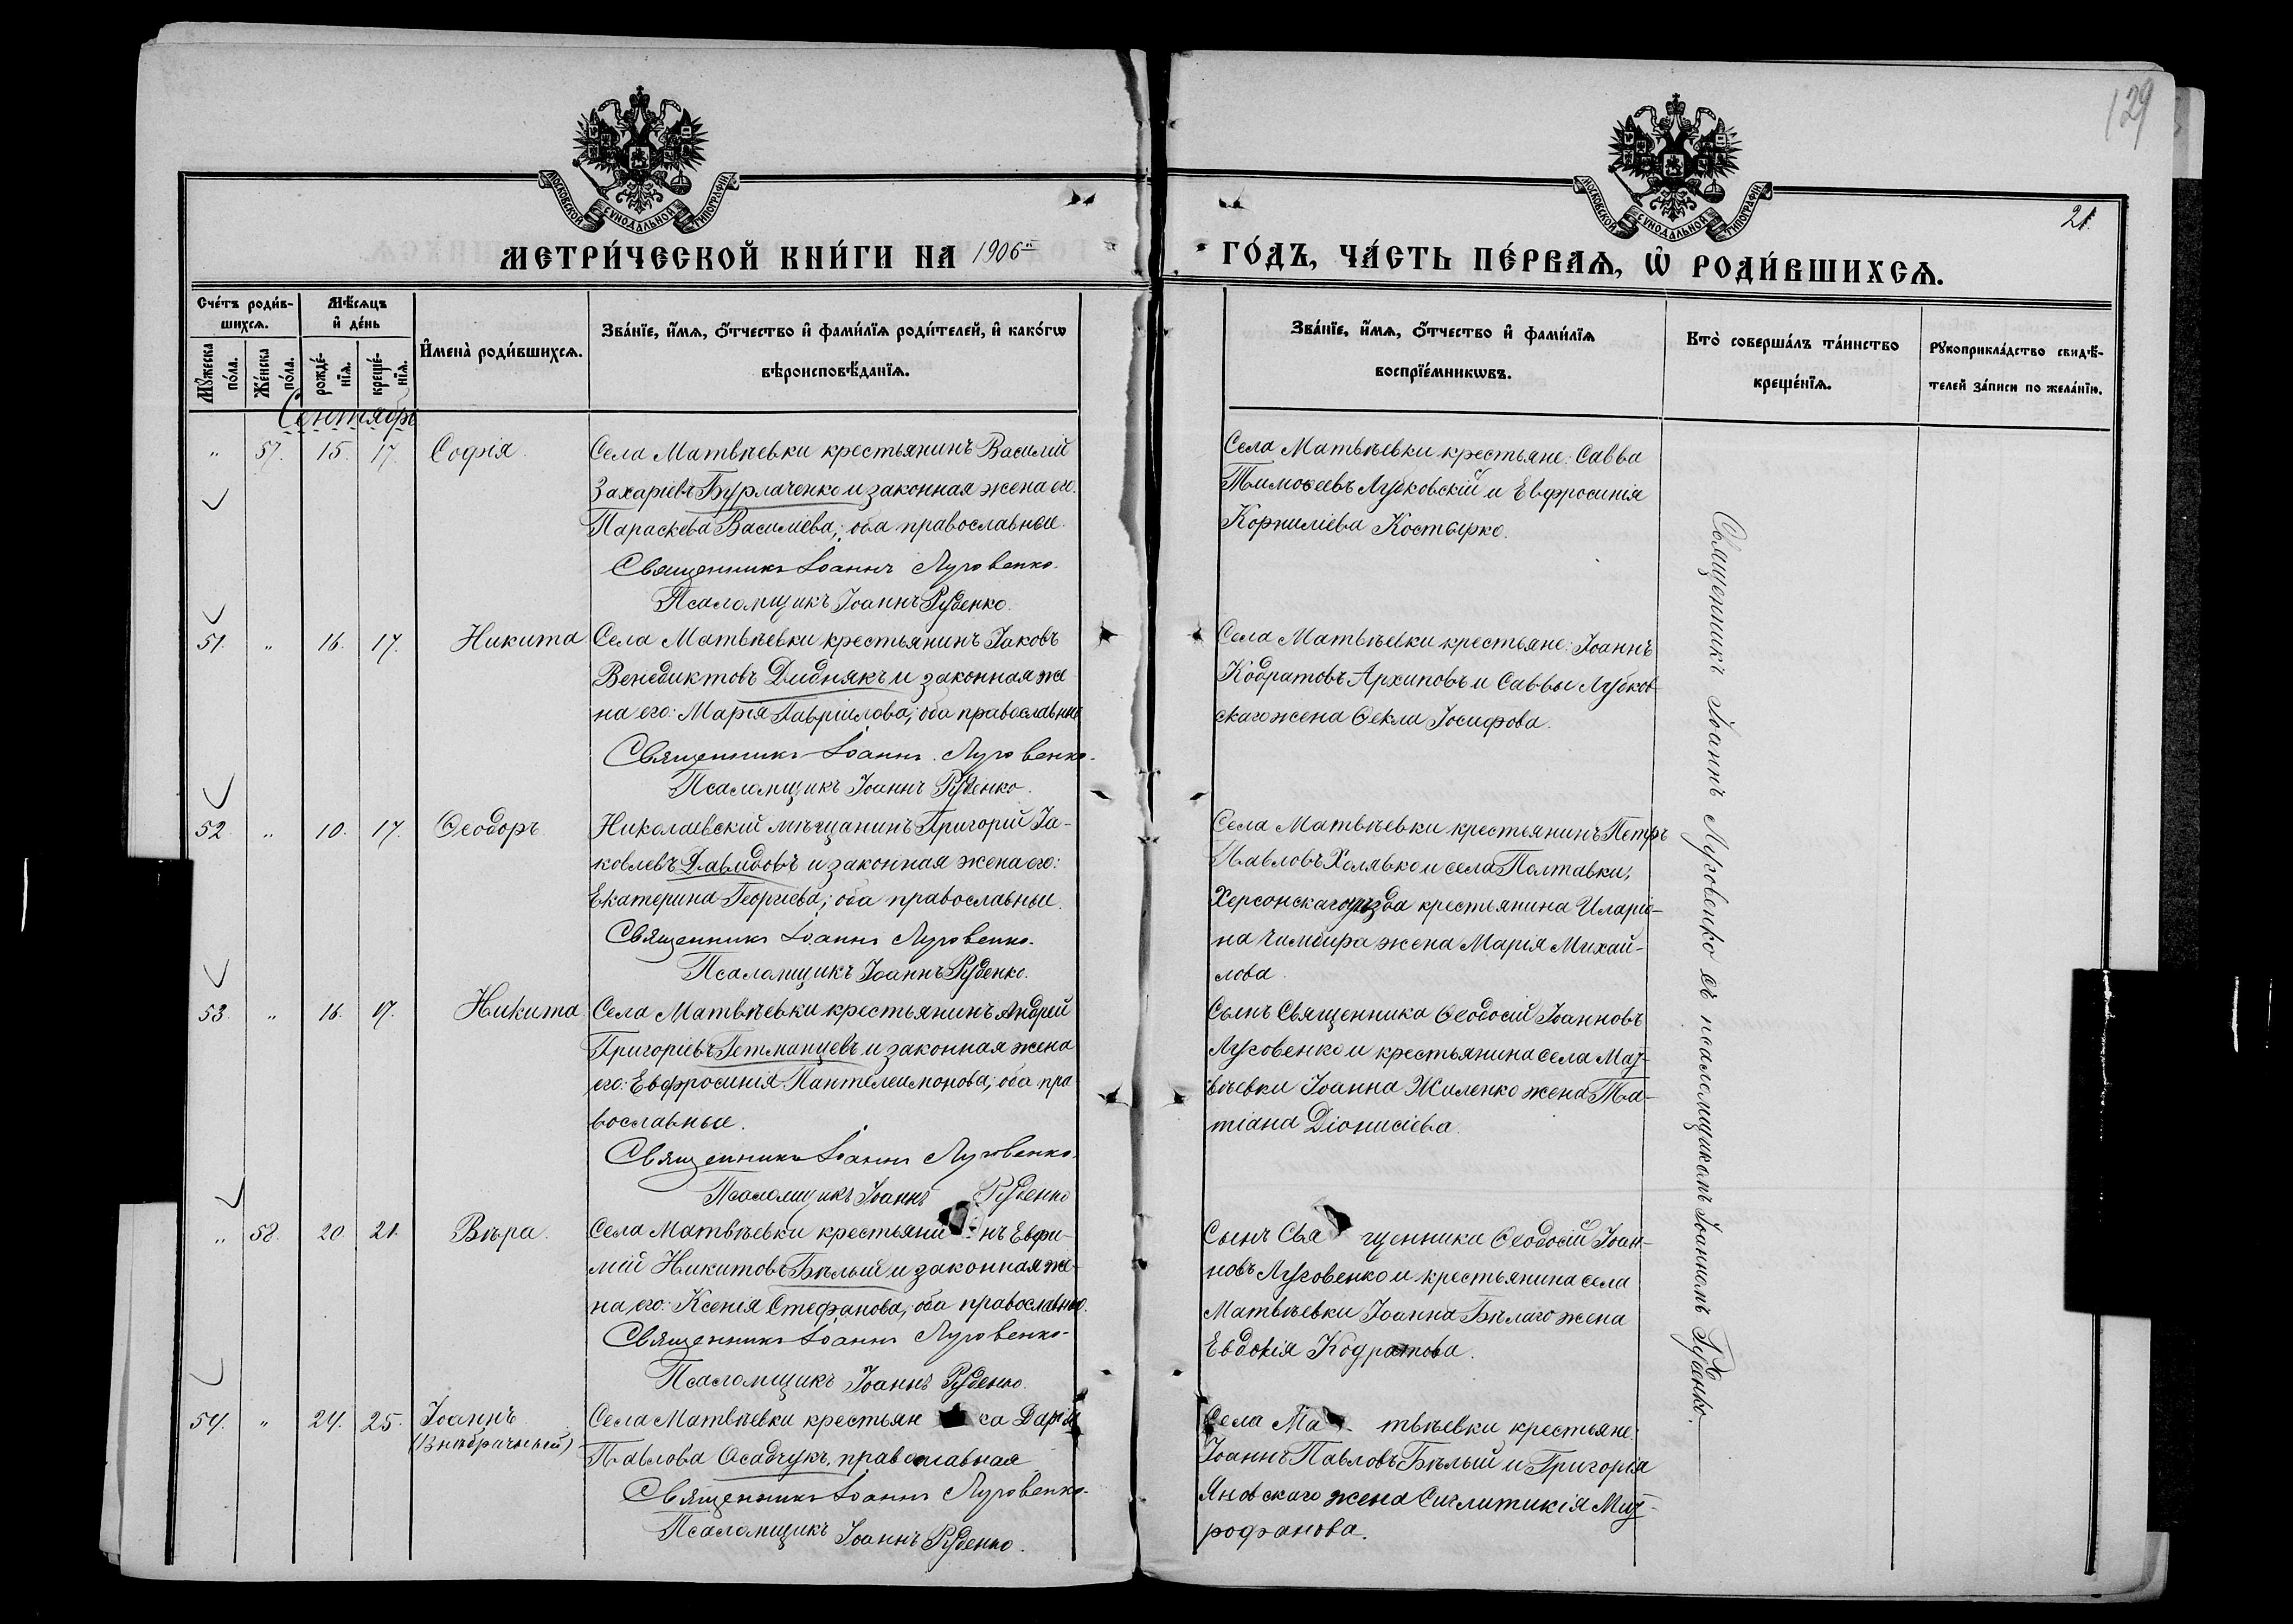 129
МОСКОВСКОЙ СУНОДАЛЬНОЙ ТИПОГРАФІИ
МОСКОВСКОЙ СУНОДАЛЬНОЙ ТИПОГРАФІИ
21.
МЕТРИ́ЧЕСКОЙ КНИ́ГИ НА 1906й ГО́ДЪ, ЧА́СТЬ ПЕ́РВАѦ, Ѡ҆ РОДИ́ВШИХСѦ.
Сче́тъ роди́в-
шихсѧ.
Мꙋ́жеска по́ла.
Же́нска по́ла.
Мѣ́сѧцъ
и҆ де́нь
рожде́-
нїѧ.
креще́-
нїѧ.
И҆мена̀ роди́вшихсѧ.
Зва́нїе, и҆́мѧ, ѻ҆́тчество и҆ фами́лїѧ роди́телей, и҆ како́гѡ
вѣроисповѣ́данїѧ.
Зва́нїе, и҆́мѧ, ѻ҆́тчество и҆ фами́лїѧ
воспрїе́мникѡвъ.
Кто̀ соверша́лъ та́инство
креще́нїѧ.
Рꙋкоприкла́дство свидѣ́-
телей за́писи по жела́нїю.
Сентябрь
" 57. 15. 17. Софія.
Села Матвѣевки крестьянинъ Василій
Захаріевъ Бурлаченко и законная жена его:
Параскева Василіева; оба православные.
Священникъ Іоаннъ Луговенко.
Псаломщикъ Іоаннъ Руденко.
Села Матвѣевки крестьяне: Савва
Тимоѳеевъ Лубковскій и Евфросинія
Корниліева Костырко.
51. " 16. 17. Никита
Села Матвѣевки крестьянинъ Іаковъ
Венедиктовъ Диднякъ и законная же
на его: Марія Гавріилова; оба православные
Священникъ Іоаннъ Луговенко.
Псаломщикъ Іоаннъ Руденко.
Села Матвѣевки крестьяне: Іоаннъ
Кодратовъ Архиповъ и Саввы Лубков-
скаго жена Ѳекла Іосифова.
52. " 10. 17. Ѳеодоръ
Николаевскій мѣщанинъ Григорій Іа-
ковлевъ Давидовъ и законная жена его:
Екатерина Георгіева; оба православные.
Священникъ Іоаннъ Луговенко.
Псаломщикъ Іоаннъ Руденко.
Села Матвѣевки крестьянинъ Петръ
Павловъ Холявко и села Полтавки,
Херсонскаго уѣзда крестьянина Иларіо-
на Чимбира жена Марія Михай-
лова.
53. " 16. 17. Никита
Села Матвѣевки крестьянинъ Андрей
Григоріевъ Гетманцевъ и законная жена
его: Евфросинія Пантелеимонова; оба пра-
вославные.
Священникъ Іоаннъ Луговенко.
Псаломщикъ Іоаннъ Руденко
Сынъ Священника Ѳеодосій Іоанновъ
Луговенко и крестьянина села Мат-
вѣевки Іоанна Жиленко жена Та-
тіана Діонисіева.
" 58. 20. 21. Вѣра.
Села Матвѣевки крестьянинъ Евфи-
мій Никитовъ Бѣлый и законная же-
на его: Ксенія Стефанова; оба православные.
Священникъ Іоаннъ Луговенко.
Псаломщикъ Іоаннъ Руденко.
Сынъ Священника Ѳеодосій Іоан-
новъ Луговенко и крестьянина села
Матвѣевки Іоанна Бѣлаго жена
Евдокія Кодратова.
54. " 24. 25. Іоаннъ
(Внѣбрачный)
Села Матвѣевки крестьянка Дарія
Павлова Осадчукъ, православная
Священникъ Іоаннъ Луговенко.
Псаломщикъ Іоаннъ Руденко.
Села Матвѣевки крестьяне:
Іоаннъ Павловъ Бѣлый и Григорія
Яновскаго жена Сиглитикія Мит-
рофанова.
Священникъ Іоаннъ Луговенко съ псаломщикомъ Іоанномъ Руденко.